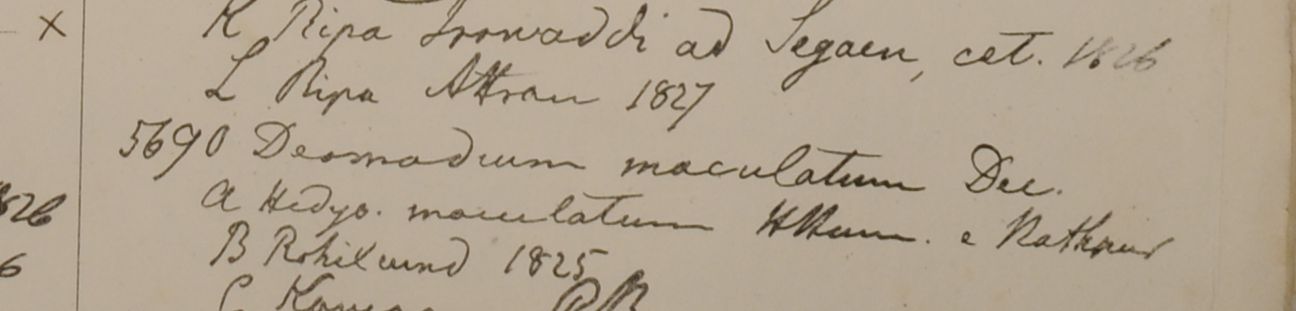 x
K Ripa Irowaddi ad Segaen, cet. 1826
L Ripa Attran 1827
5690 Desmodium maculatum Dec.
a Hedys. maculatum HHam. e Nathpur
826
B Rohilcund 1825
6
C